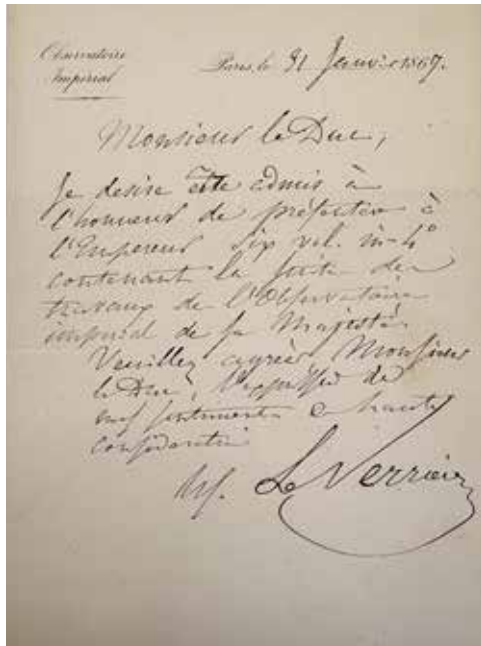 Observatoire
Impérial
Paris, le 31 Janvier 1867.
Monsieur le Duc,
Je desire être admis à
l'honneur de présenter à
l'Empereur six vol. in-4°
contenant la suite des
travaux de l'Observatoire
impérial de sa Majesté.
Veuillez agréer, Monsieur
le Duc, l'expression de
mes sentiments de haute
considération
Le Verrier